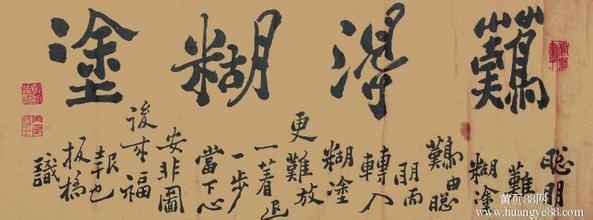 難得糊塗
聰明
難
糊塗
難由聰
明而
轉入
糊塗
更難放
一著退
一步
當下心
安非圖
後來福
報也
板橋
識
黄页88网
www.huangye88.com